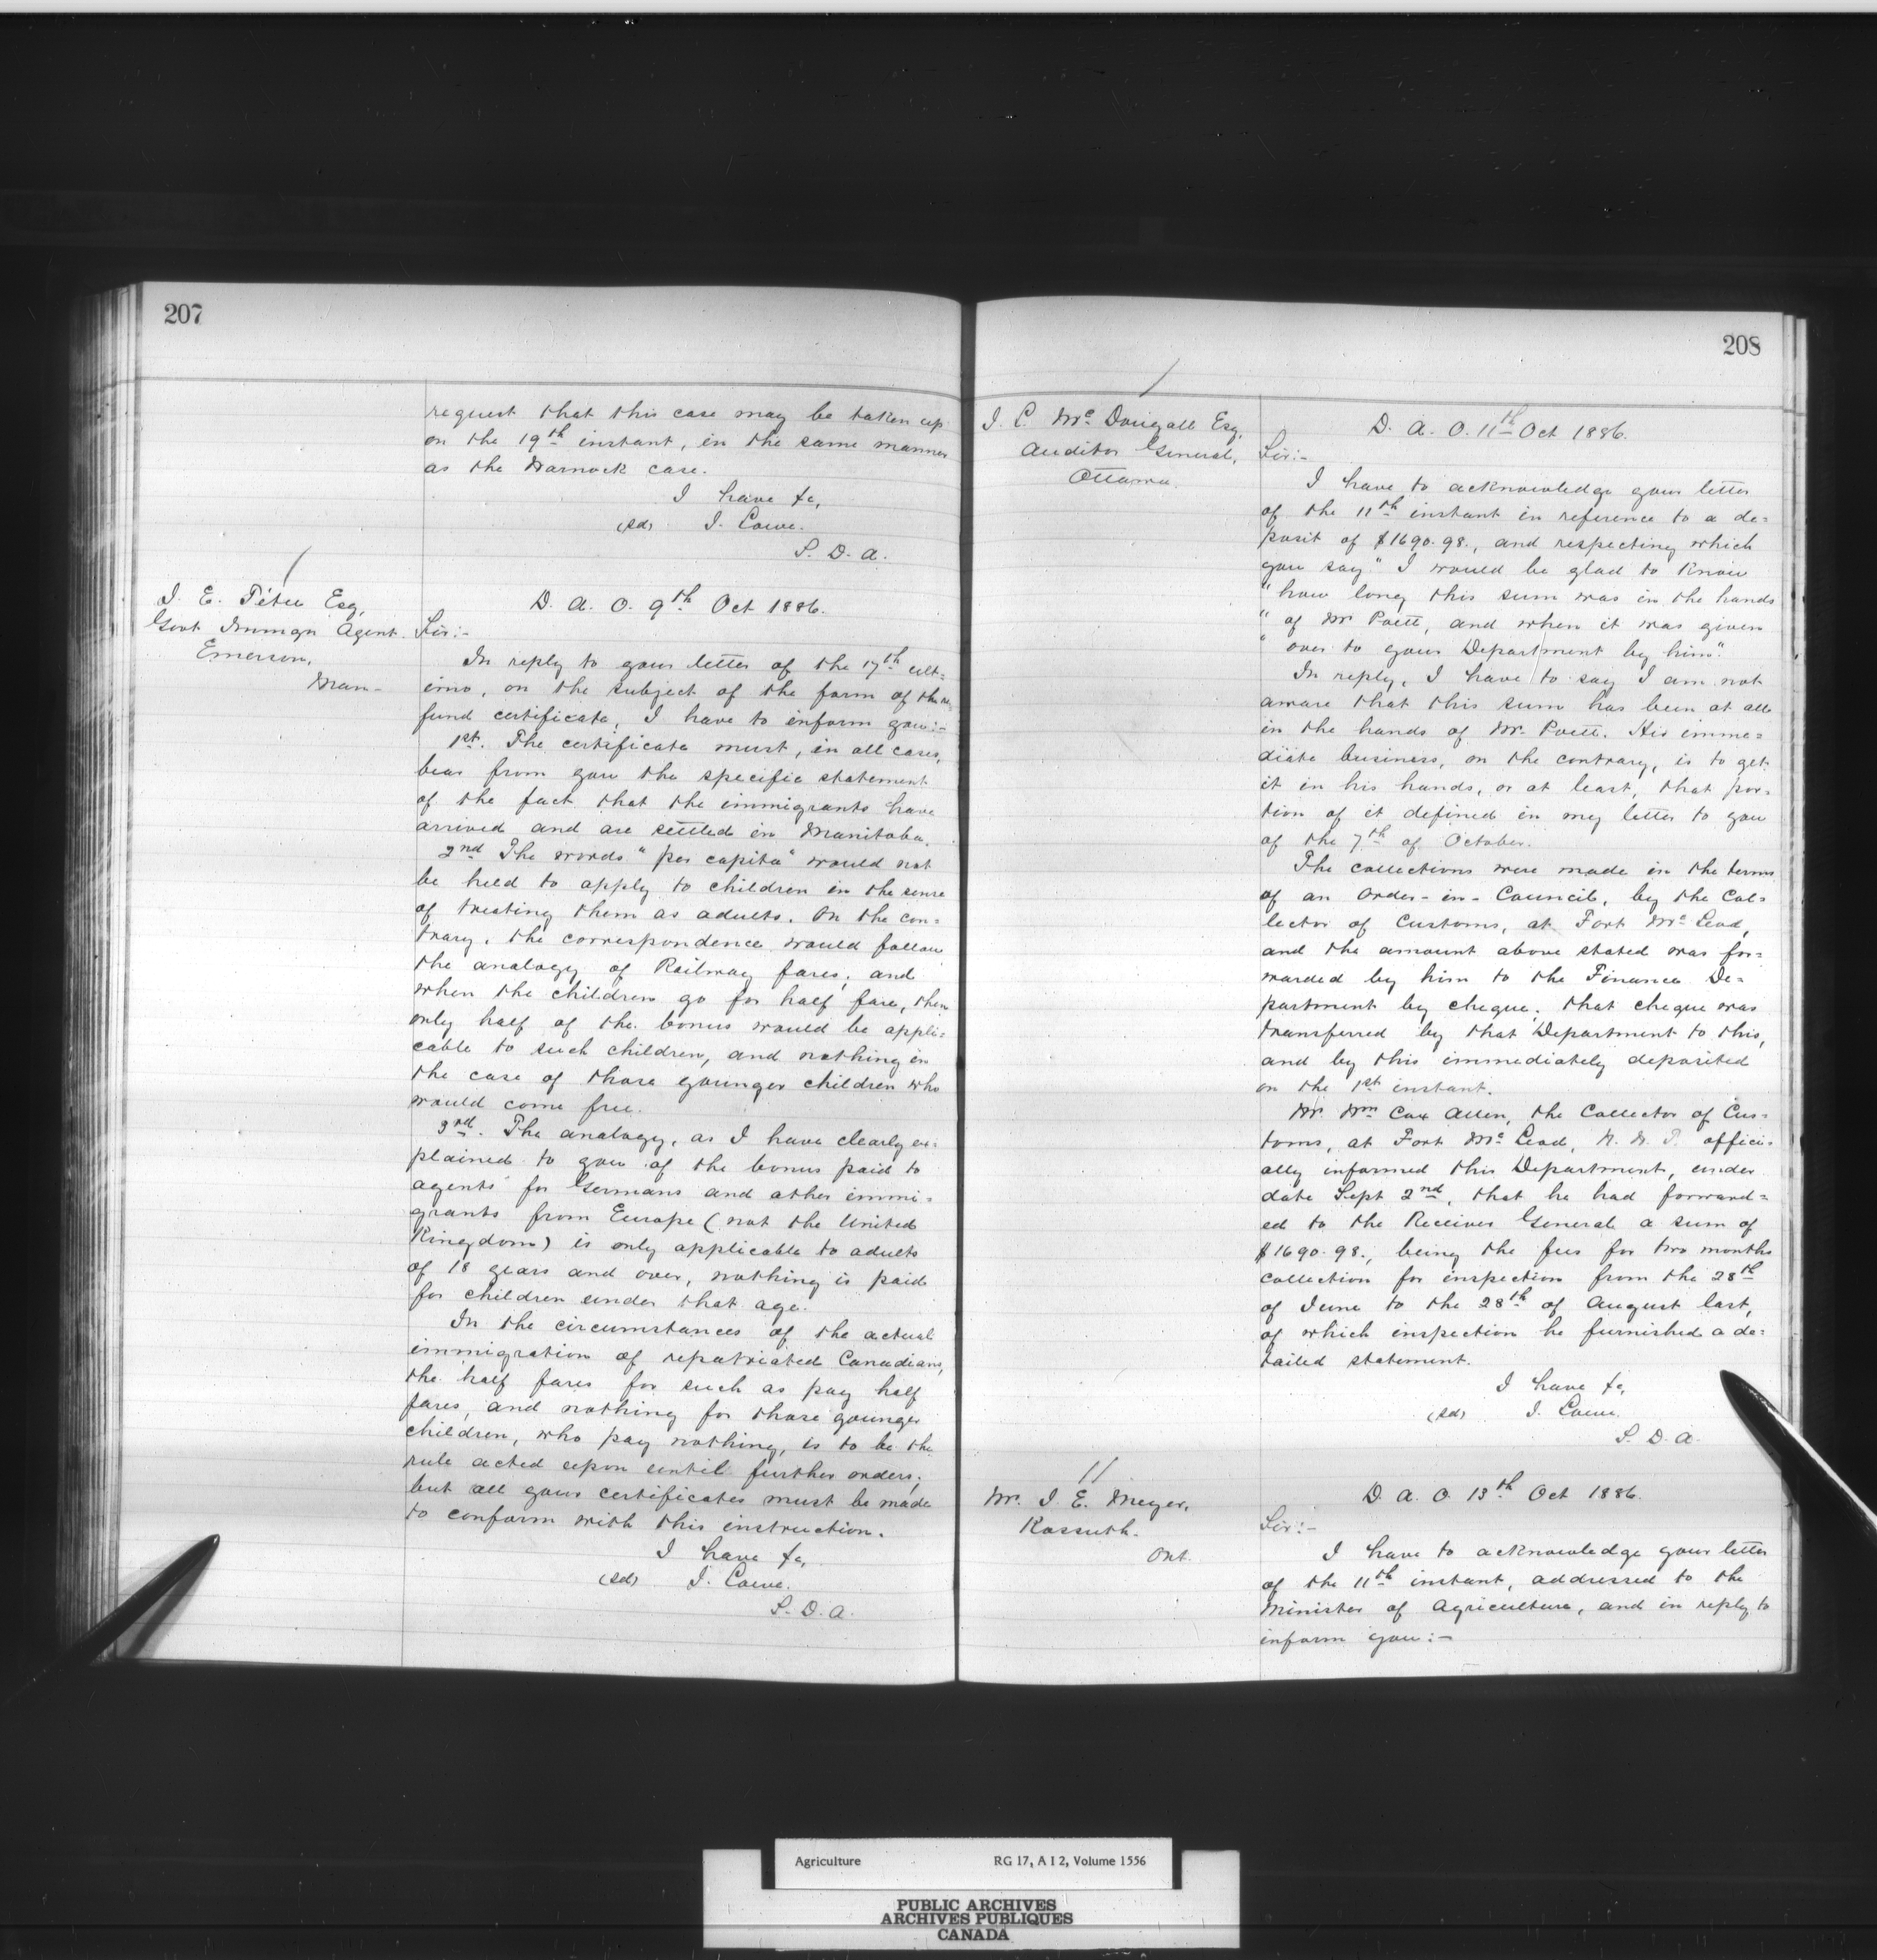 207
request that this case may be taken up
on the 19th instant, in the same manner
as the Warnock case.
I have &c,
(sd) J. Lowe.
S. D. A.
/
J. E. Têtu Esq,
Govt Immgn Agent.
Emerson,
Man-
D. A. O. 9th Oct 1886.
Sir:-
In reply to your letter of the 17th ult=
imo, on the subject of the form of the re=
fund certificate, I have to inform you:-
1st. The certificate must, in all cases,
bear from you the specific statement
of the fact that the immigrants have
arrived and are settled in Manitoba.
2nd The words "per capita" would not
be held to apply to children in the sense
of treating them as adults. On the con=
trary, the correspondence would follow
the analogy of Railway fares, and
when the children go for half fare, then
only half of the bonus would be appli=
cable to such children, and nothing in
the case of those younger children who
would come free.
3rd. The analogy, as I have clearly ex=
plained to you of the bonus paid to
agents for Germans and other immi=
grants from Europe (not the United
Kingdom) is only applicable to adults
of 18 years and over, nothing is paid
for children under that age.
In the circumstances of the actual
immigration of repatriated Canadians,
the half fares for such as pay half
fares, and nothing for those younger
children, who pay nothing, is to be the
rule acted upon until further orders;
but all your certificates must be made
to conform with this instruction.
I have &c,
(sd) J. Lowe.
S. D. A.
208
/
J. L. Mc Dougall Esq,
Auditor General,
Ottawa.
D. A. O. 11th Oct 1886.
Sir:-
I have to acknowledge your letter
of the 11th instant in reference to a de=
posit of $1690.98., and respecting which
you say "I would be glad to know
"how long this sum was in the hands
"of Mr Poett, and when it was given
"over to your Department by him".
In reply, I have to say I am not
aware that this sum has been at all
in the hands of Mr. Poett. His imme=
diate business, on the contrary, is to get
it in his hands, or at least, that por=
tion of it defined in my letter to you
of the 7th of October.
The collections were made in the terms
of an Order-in-Council, by the Col=
lector of Customs, at Fort Mc Leod,
and the amount above stated was for=
warded by him to the Finance De=
partment by cheque; that cheque was
transferred by that Department to this,
and by this immediately deposited
on the 1st instant.
Mr. Wm Cox Allen, the Collector of Cus=
toms, at Fort Mc Leod, N. W. T. offici=
ally informed this Department, under
date Sept 2nd, that he had forward=
ed to the Receiver General a sum of
$1690.98., being the fees for two months
collection for inspection from the 28th
of June to the 28th of August last,
of which inspection he furnished a de=
tailed statement.
I have &c,
(sd) J. Lowe.
S. D. A.
//
Mr. J. E. Meyer,
Kossuth.
Ont.
D. A. O. 13th Oct 1886.
Sir:-
I have to acknowledge your letter
of the 11th instant, addressed to the
Minister of Agriculture, and in reply to
inform you:-
Agriculture RG 17, A I 2, Volume 1556
PUBLIC ARCHIVES
ARCHIVES PUBLIQUES
CANADA